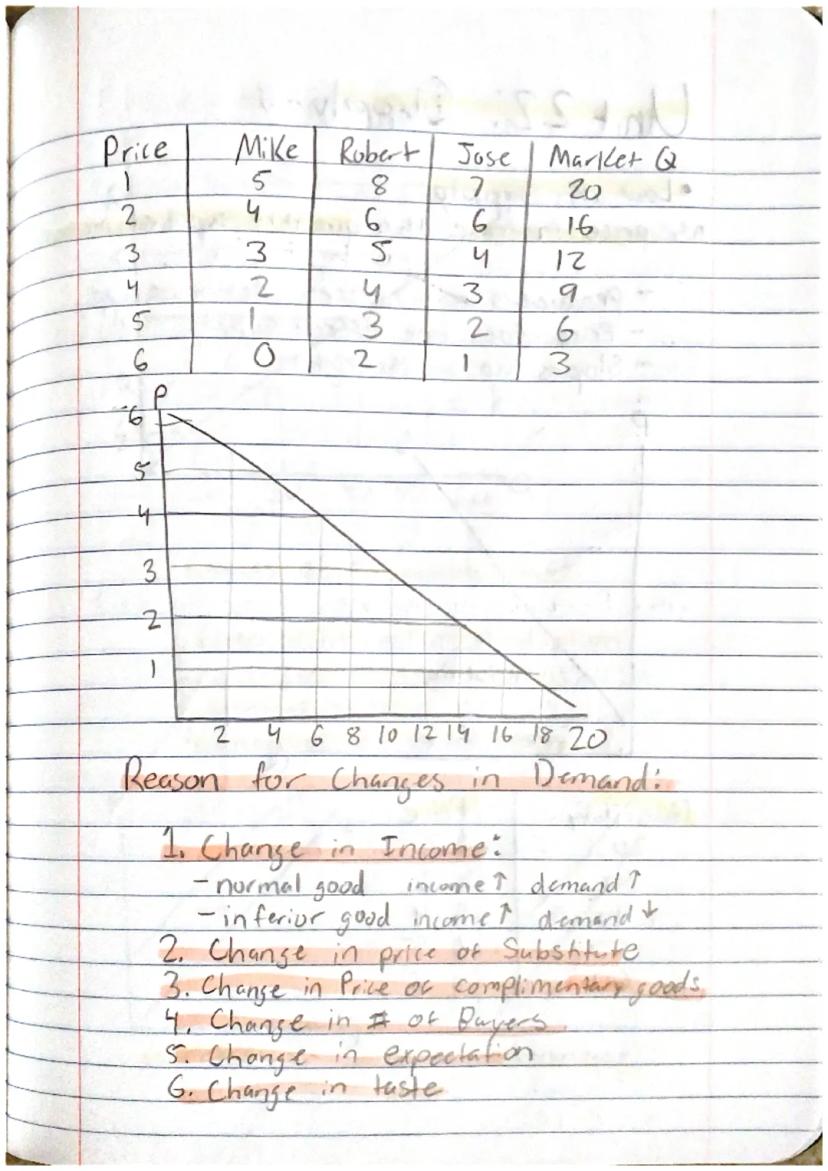 Price Mike Robert Jose Market Q
1 5 8 7 20
2 4 6 6 16
3 3 5 4 12
4 2 4 3 9
5 1 3 2 6
6 0 2 1 3
P
6
5
4
3
2
1
2 4 6 8 10 12 14 16 18 20
Reason for Changes in Demand:
1. Change in Income:
- normal good income↑ demand↑
- inferior good income↑ demand↓
2. Change in price of Substitute
3. Change in Price of complimentary goods
4. Change in # of Buyers
5. Change in expectation
6. Change in taste